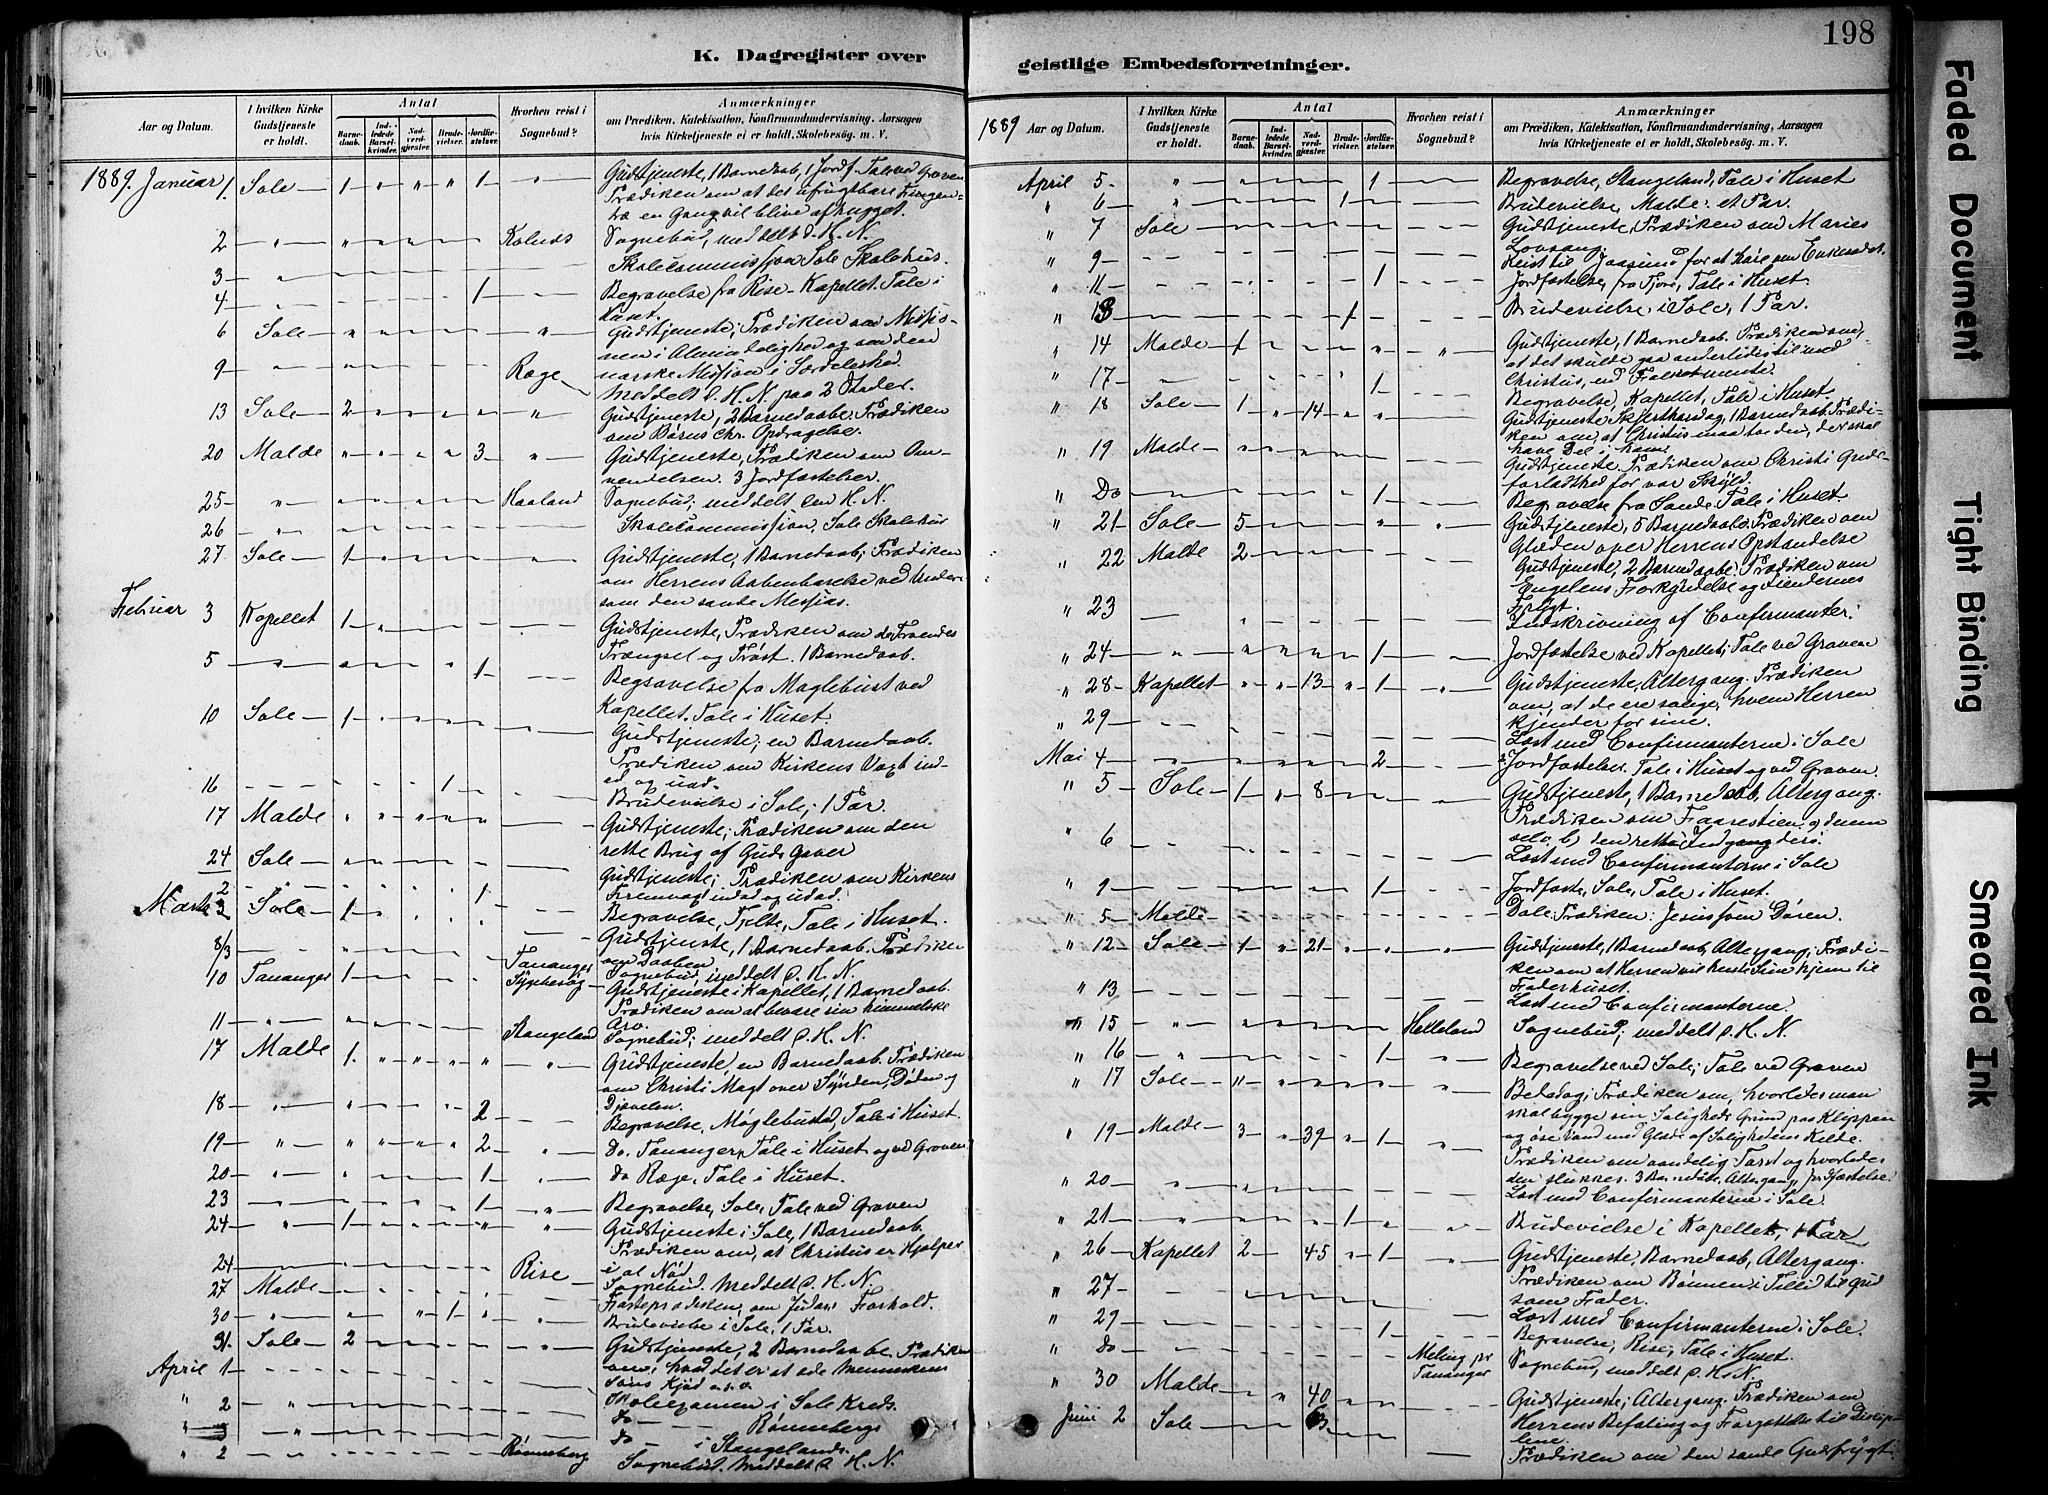 198
K. Dagregister over geistlige Embedsforretninger.
Aar og Datum. I hvilken Kirke Gudstjeneste er holdt. Antal Barnedaab. Indledede Barselkvinder. Nadverdgjester. Brudevielser. Jordfæstelser. Hvorhen reist i Sognebud? Anmærkninger om Prædiken, Katekisation, Konfirmandundervisning, Aarsagen hvis Kirketjeneste ei er holdt, Skolebesøg. m. V.
1889. Januar 1. Sole 1 " " " 1 " Gudstjeneste, 1 Barnedaab, 1 Jordf. Tale ved Graven
Prædiken om at det ufrugtbare Figen-
træ en Gang vil blive afhugget.
2 " Sognebud, meddelt d. H. N.
3 " Skolecommission Sole Skolehus.
4 1 Begravelse fra Rise - Kapellet. Tale i
Huset.
6 Sole " Gudstjeneste; Prædiken om Missio-
nen i Almindelighed og om den
9 " Ræge narske Mission i Særdeleshed
Meddelt d. H. N. paa 2 Steder.
13 Sole 2 " Gudstjeneste, 2 Barnedaab; Prædiken
om Børns Chr. Opdragelse.
20 Malde " " " " 3 " Gudstjeneste, Prædiken om Om-
vendelsen. 3 Jordfæstelser.
25 " Haaland Sognebud; meddelt den H. N.
26 " Skolecommission, Sole Skolehus
27 Sole 1 Gudstjeneste, 1 Barnedaab; Prædiken
om Herrens Aabenbarelse ved Under
som den sande Messias.
Februar 3 Kapellet 1 Gudstjeneste, Prædiken om de Troendes
Trængsel og Trøst. 1 Barnedaab.
5 1 Begravelse fra Maglebust ved
Kapellet. Tale i Huset.
10 Sole 1 Gudstjeneste; en Barnedaab.
Prædiken om Kirkens Vagt ind-
ad og uad.
16 1 Brudevielse i Sole; 1 Par.
17 Malde Gudstjeneste; Prædiken om den
rette Brug af Guds Gaver
24 Sole Gudstjeneste; Prædiken om Kirkens
Fremvagt indad og udad.
2 1 Begravelse, Tjelte, Tale i Huset.
Marts 3 Sole 1 Gudstjeneste, 1 Barnedaab. Prædiken
om Daaben
8/3 Tananger Sognebud, meddelt d. H. N.
10 Tananger 1 Sygebesøg Gudstjeneste i Kapellet, 1 Barnedaab.
Prædiken om at bevare sin himmelske
Arv.
11 " Stangeland Sognebud; meddelt d. H. N.
17 Malde 1. " " " " " Gudstjeneste, en Barnedaab. Prædiken
om Christi Magt over Synden, Døden og
Djævelen.
18 " 2 Begravelse, Møglebustad, Tale i Huset.
19 " 2 " Do. Tananger, Tale i Huset og ved Graven
20 " 1 do Ræge, Tale i Huset.
23 " 1 " Begravelse, Sole, Tale ved Graven
24 " 1 " " Gudstjeneste i Sole, 1 Barnedaab.
Prædiken om, at Christus er Hjælper
i al Nød
24 Rise Sognebud. Meddelt d. H. N.
27 Malde Fasteprædiken, om Judas' Forhold.
30 " 1 " Brudevielse i Sole, 1 Par.
31. Sole 2 Gudstjeneste, 2 Barnedaabe. Prædiken
om, hvad det er at æde Menneskens
Søns Kjød o.s.v.
April 1 Skoleexamen i Sole Kreds.
" 2 " do Rønnebergs
" 3 " do i Stangelands
" 2 Rønneberg Sognebud. Meddelt d. H. N.
1889 Aar og Datum. I hvilken Kirke Gudstjeneste er holdt. Antal Barnedaab. Indledede Barselkvinder. Nadverdgjester. Brudevielser. Jordfæstelser. Hvorhen reist i Sognebud? Anmærkninger om Prædiken, Katekisation, Konfirmandundervisning, Aarsagen hvis Kirketjeneste ei er holdt, Skolebesøg. m. V.
April 5. " 1 Begravelse, Stangeland, Tale i Huset
" 6 " 1 Brudevielse, Malde: et Par.
" 7 Sole Gudstjeneste, Prædiken om Marias
Lovsang.
" 9 Reist til Jaasund for at høre om Enkesædet.
" 11 1 Jordfæstelse, fra Tjora, Tale i Huset.
" 13 1 Brudevielse i Sole, 1 Par.
" 14 Malde 1 " Gudstjeneste, 1 Barnedaab. Prædiken om,
at det skulde gaa anderledes til med
Christus, end Folket mente.
" 17 1 Begravelse, Kapellet, Tale i Huset.
" 18 Sole 1 " 14 " " Gudstjeneste Skjærthorsdag, 1 Barnedaab. Prædi-
ken om, at Christus maa toe den, der skal
have Del i ham.
" 19 Malde Gudstjeneste. Prædiken om Christi Guds-
forladthed for vor Skyld.
" Do 1 Begravelse fra Sande, Tale i Huset.
" 21 Sole 5 " " Gudstjeneste, 5 Barnedaab. Prædiken om
Glæden over Herrens Opstandelse
" 22 Malde 2 Gudstjeneste, 2 Barnedaabe. Prædiken om
Engelens Forkyndelse og Fiendernes
Frygt.
" 23 Indskrivning af Confirmanter.
" 24 " 1 Jordfæstelse ved Kapellet; Tale ved Graven
" 28 Kapellet " " 13 " 1 " Gudstjeneste, Altergang. Prædiken
om, at de ere salige, hvem Herren
kjender for sine.
" 29 Læst med Confirmanterne i Sole
Mai 4 2 2 Jordfæstelser. Tale i Huset og ved Graven.
" 5 Sole 1 " 8 Gudstjeneste, 1 Barnedaab, Altergang.
Prædiken om Faarestien og dennes
den rette Indgang dertil.
" 6 " Læst med Confirmanterne i Sole
" 9 1 Jordfæste, Sole, Tale i Huset.
" 5 Malde Dale. Prædiken: Jesus som Døren.
" 12 Sole 1 " 21 " " Gudstjeneste, 1 Barnedaab, Altergang; Prædi-
ken om at Herren vil hente Sine hjem til
Faderhuset.
" 13 Læst med Confirmanterne.
" 15 " Helleland Sognebud; meddelt d. H. N.
" 16 " 1 " Begravelse ved Sole; Tale ved Graven
" 17 Sole " Bededag; Prædiken om, hvorledes man
skal bygge sin Saligheds Grund paa Klippen
og øse Vand med Glæde af Salighedens Kilde.
" 19 Malde 3 " 39 " 1 " Prædiken om aandelig Tørst og hvorledes
den slukkes. 3 Barnedaabe, Altergang, Jordfæstelse.
" 20 " Læst med Confirmanterne i Sole.
" 21 " 1 Brudevielse i Kapellet, 1 Par
" 26 Kapellet 2 45 " 1 Gudstjeneste, Barnedaab, Altergang.
Prædiken om Bønnen i Tillid til Gud
som Fader.
" 27 Læst med Confirmanterne i Sole.
" 29 1 Begravelse, Rise, Tale i Huset.
" Do Meling pr Tananger Sognebud, meddelt d. H. N.
" 30 Malde " 40 Gudstjeneste; Altergang. Prædiken om
Herrens Befaling og Forjættelse til Discip-
lene.
Juni 2 Sole Prædiken om den sande Gudsfrygt.
Faded Document
Tight Binding
Smeared Ink